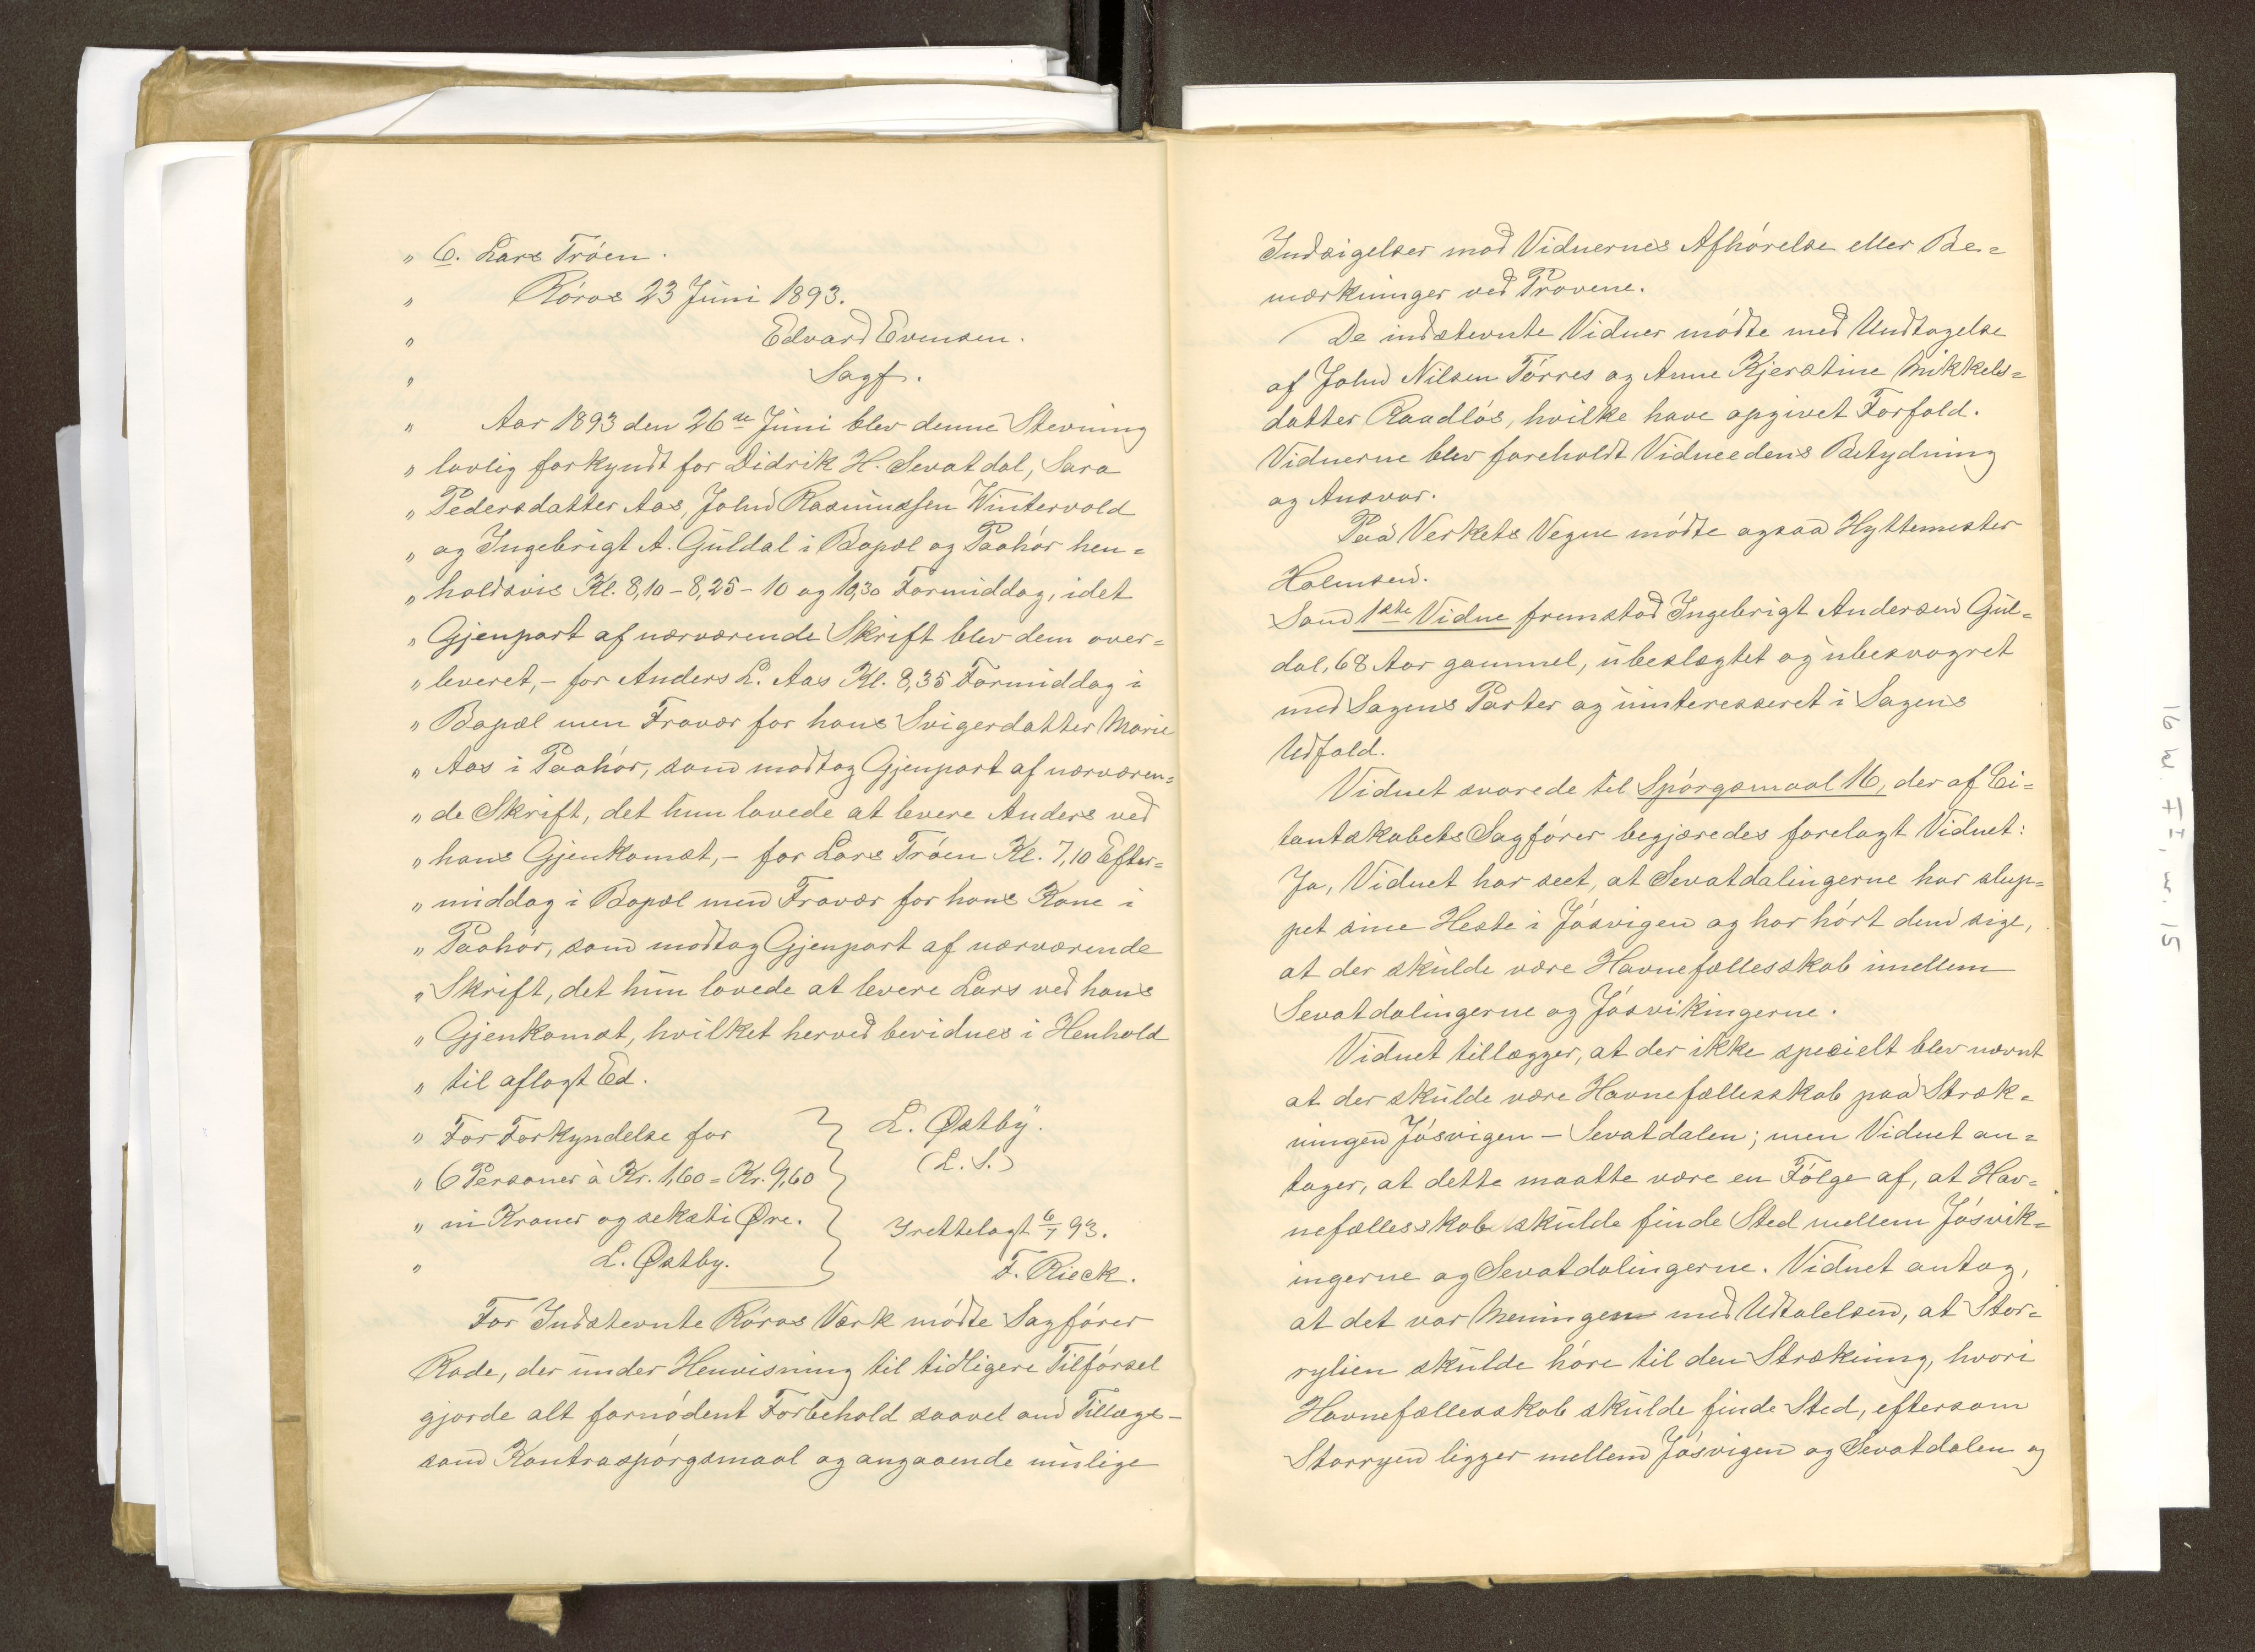 „ 6. Lars Tróen.
„ Róros 23 Juni 1893.
„ Edvard Evensen.
„ Sagf.
„ Aar 1893 den 26de Juni blev denne Stevning
„ lovlig forkyndt for Didrik H. Sevatdal, Sara
„ Pedersdatter Aas, John Rasmussen Wintervold
„ og Ingebrigt A. Guldal i Bopæl og Paahór hen=
„ holdsvis Kl. 8,10 - 8,25 - 10 og 10,30 Formiddag, idet
„ Gjenpart af nærværende Skrift blev dem over=
„ leveret, - for Anders L. Aas Kl. 8,35 Formiddag i
„ Bopæl men Fravær for hans Svigerdatter Marie
„ Aas i Paahór, som modtog Gjenpart af nærværen=
„ de Skrift, det hun lovede at levere Anders ved
„ hans Gjenkomst, - for Lars Tróen Kl. 7,10 Efter=
„ middag i Bopæl men Fravær for hans Kone i
„ Paahór, som modtog Gjenpart af nærværende
„ Skrift, det hun lovede at levere Lars ved hans
„ Gjenkomst, hvilket herved bevidnes i Henhold
„ til aflagt Ed.
„ For Forkyndelse for
„ 6 Personer à Kr. 1,60 = Kr. 9,60
„ ni Kroner og seksti Øre.
„ L. Østby.
L. Østby.
(L. S.)
Irettelagt 6/7 93.
F. Rieck.
For Indstevnte Róros Værk módte Sagfórer
Rode, der under Henvisning til tidligere Tilfórsel
gjorde alt fornódent Forbehold saavel om Tillægs-
som Kontraspórgsmaal og angaaende mulige
Indsigelser mod Vidnernes Afhórelse eller Be=
mærkninger ved Próvene.
De indstevnte Vidner módte med Undtagelse
af John Nilsen Tórres og Anne Kjerstine Mikkels=
datter Raadlós, hvilke have opgivet Forfald.
Vidnerne blev foreholdt Vidneedens Betydning
og Ansvar.
Paa Verkets Vegne módte ogsaa Hyttemester
Holmsen.
Som 1ste Vidne fremstod Ingebrigt Andersen Gul=
dal, 68 Aar gammel, ubeslægtet og ubesvogret
med Sagens Parter og uinteresseret i Sagens
Udfald.
Vidnet svarede til Spórgsmaal 16, der af Ci=
tantskabets Sagfórer begjæredes forelagt Vidnet:
Ja, Vidnet har seet, at Sevatdalingerne har slup=
pet sine Heste i Jósvigen og har hórt dem sige,
at der skulde være Havnefællesskab imellem
Sevatdalingerne og Jósvikingerne.
Vidnet tillægger, at der ikke specielt blev nævnt
at der skulde være Havnefællesskab paa Stræk=
ningen Jósvigen - Sevatdalen; men Vidnet an=
tager, at dette maatte være en Fólge af, at Hav=
nefællesskab skulde finde Sted mellem Jósvik=
ingerne og Sevatdalingerne. Vidnet antog,
at det var Meningen med Udtalelsen, at Stor=
rylien skulde hóre til den Strækning, hvori
Havnefællesskab skulde finde Sted, eftersom
Storryen ligger mellem Jósvigen og Sevatdalen og